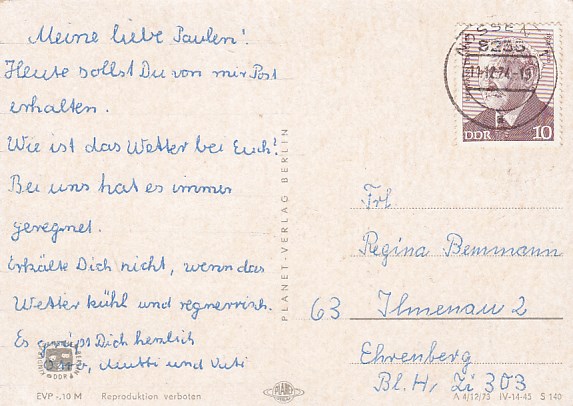 Meine liebe Paulen!
Heute sollst Du von mir Post
erhalten.
Wie ist das Wetter bei Euch?
Bei uns hat es immer
geregnet.
Erhälte Dich nicht, wenn das
Wetter kühl und regnerisch.
Es grüßt Dich herzlich
Mutti und Vati
EVP -.10 M Reproduktion verboten
PLANET-VERLAG BERLIN
PLANET
8255
11.12.74-15
DDR 10
Frl
Regina Bemmann
63 Ilmenau 2
Ehrenberg
Bl. H, Zi 303
A 4/12/73 IV-14-45 S 140